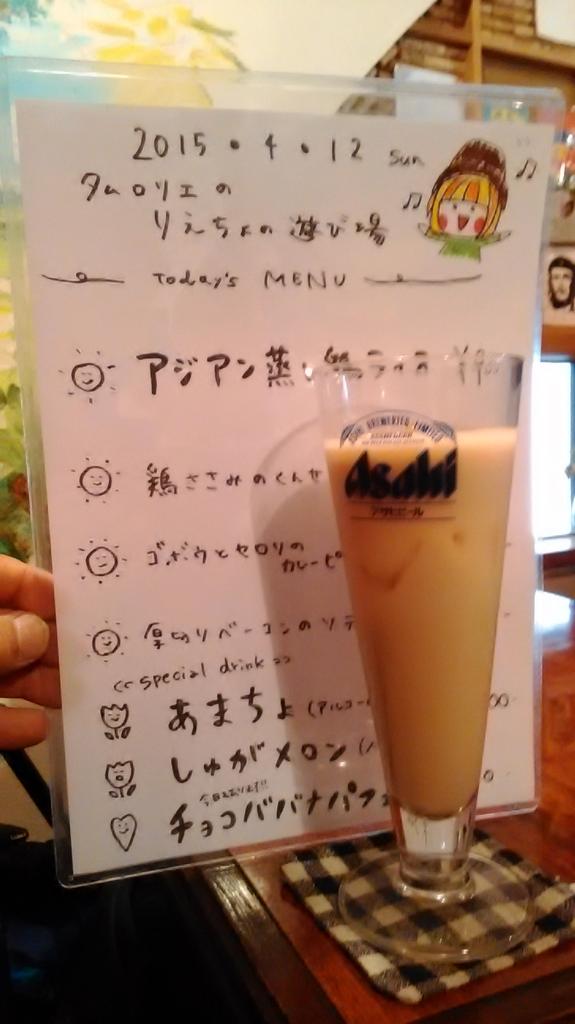 2015・4・12 sun
タムロリエの
りえちょの遊び場
Today's MENU
アジアン蒸し鶏ライス
鶏ささみのくんせ
ゴボウとセロリの
カレーピ
厚切りベーコンのソテ
<<special drink>>
あまちょ(アルコー
しゅがメロン(
チョコババナパフェ
BREWERIES LIMITED
Asahi
アサヒビール